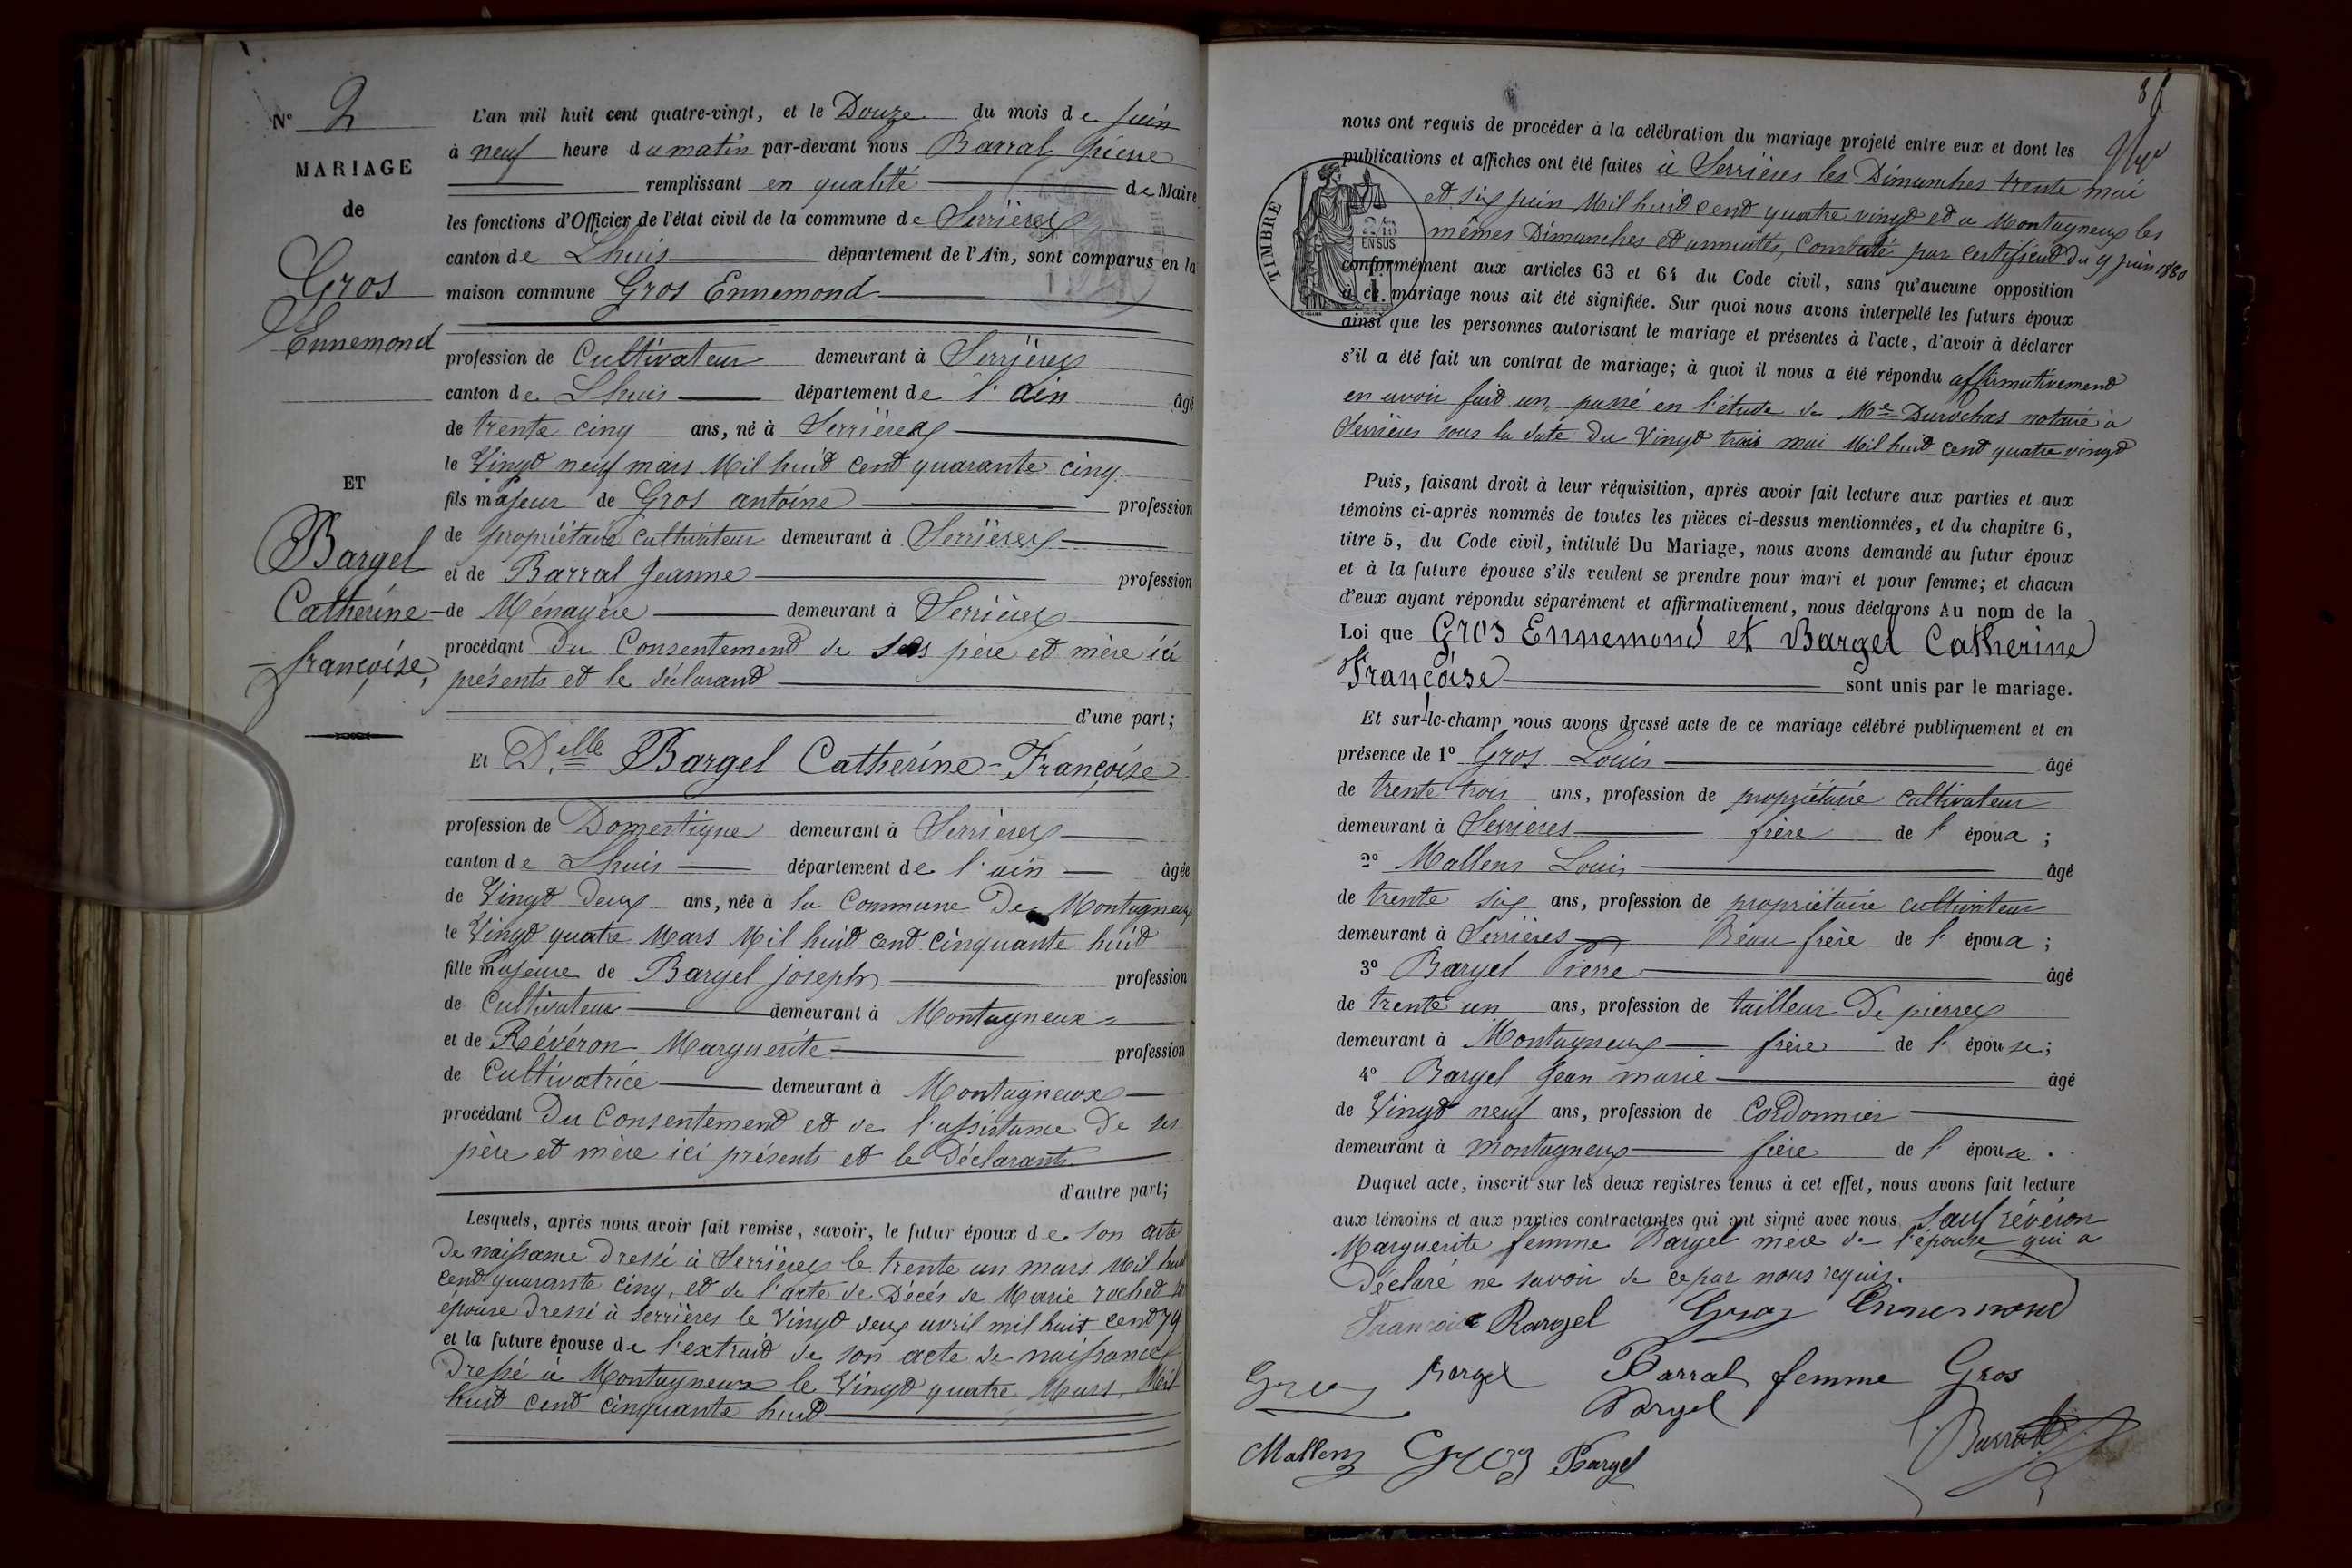 N° 2
MARIAGE
de
Gros
Ennemond
ET
Bargel
Catherine
françoise,
L'an mil huit cent quatre-vingt, et le Douze du mois de juin
à neuf heure du matin par-devant nous Barral pierre
remplissant en qualité de Maire
les fonctions d'Officier de l'état civil de la commune de Serrières
canton de Lhuis département de l'Ain, sont comparus en la
maison commune Gros Ennemond
profession de Cultivateur demeurant à Serrières
canton de Lhuis département de l'ain âgé
de trente cinq ans, né à Serrières
le Vingt neuf mars Mil huit cent quarante cinq
fils majeur de Gros antoine profession
de propriétaire cultivateur demeurant à Serrières
et de Barral Jeanne profession
de Ménagère demeurant à Serrières
procédant Du Consentement de ses père et mère ici
présents et le déclarant
d'une part;
Et Delle Bargel Catherine-Françoise
profession de Domestique demeurant à Serrières
canton de Lhuis département de l'ain âgée
de Vingt deux ans, née à la Commune De Montagneux
le Vingt quatre Mars Mil huit cent cinquante huit
fille majeure de Bargel joseph profession
de Cultivateur demeurant à Montagneux
et de Révéron Marguerite profession
de Cultivatrice demeurant à Montagneux
procédant Du Consentement et de l'assistance De ses
père et mère ici présents et le Déclarant
d'autre part;
Lesquels, après nous avoir fait remise, savoir, le futur époux de son acte
De naissance Dressé à Serrières le trente un mars Mil huit
cent quarante cinq, et de l'acte de Décés de Marie rochet
épouse Dressé à serrières le Vingt deux avril mil huit cent 79
et la future épouse de l'extrait de son acte de naissance
Dressé à Montagneux le Vingt quatre Mars, Mil
huit cent cinquante huit
nous ont requis de procéder à la célébration du mariage projeté entre eux et dont les
publications et affiches ont été faites à Serrières les Dimanches trente mai
et six juin Mil huit cent quatre vingt et a Montagneux les
mêmes Dimanches et année, Constaté par certificat du 9 juin 1880
TIMBRE
EN SUS
conformément aux articles 63 et 64 du Code civil, sans qu'aucune opposition
à ce mariage nous ait été signifiée. Sur quoi nous avons interpellé les futurs époux
ainsi que les personnes autorisant le mariage et présentes à l'acte, d'avoir à déclarer
s'il a été fait un contrat de mariage; à quoi il nous a été répondu affirmativement
en avoir fait un, passé en l'étude de Me Durochas notaire à
Serrières sous la date Du Vingt trois mai Mil huit cent quatre vingt
Puis, faisant droit à leur réquisition, après avoir fait lecture aux parties et aux
témoins ci-après nommés de toutes les pièces ci-dessus mentionnées, et du chapitre 6,
titre 5, du Code civil, intitulé Du Mariage, nous avons demandé au futur époux
et à la future épouse s'ils veulent se prendre pour mari et pour femme; et chacun
d'eux ayant répondu séparément et affirmativement, nous déclarons Au nom de la
Loi que Gros Ennemond et Bargel Catherine
Françoise sont unis par le mariage.
Et sur-le-champ nous avons dressé acte de ce mariage célébré publiquement et en
présence de 1° Gros Louis âgé
de trente trois ans, profession de propriétaire cultivateur
demeurant à Serrières frère de l'époux;
2° Mallens Louis âgé
de trente six ans, profession de propriétaire cultivateur
demeurant à Serrières Béau frère de l'époux;
3° Bargel Pierre âgé
de trente un ans, profession de tailleur De pierres
demeurant à Montagneux frère de l'épouse;
4° Bargel Jean marie âgé
de Vingt neuf ans, profession de Cordonnier
demeurant à montagneux frère de l'épouse.
Duquel acte, inscrit sur les deux registres tenus à cet effet, nous avons fait lecture
aux témoins et aux parties contractantes qui ont signé avec nous, sauf révéron
Marguerite femme Bargel mère de l'épouse qui a
Déclaré ne savoir de ce par nous requis.
Françoise Bargel Gros Ennemond
Gros Bargel Barral femme Gros
Bargel
Mallens Gros Bargel Barral